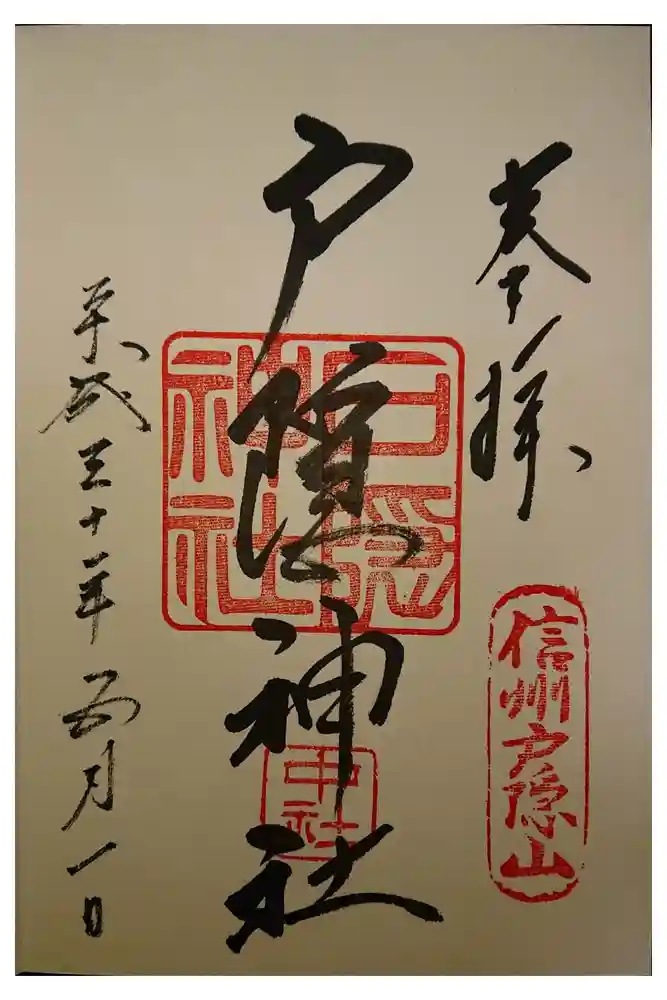 奉拝
信州戸隠山
戸隠神社
戸隠神社
中社
平成三十一年五月一日